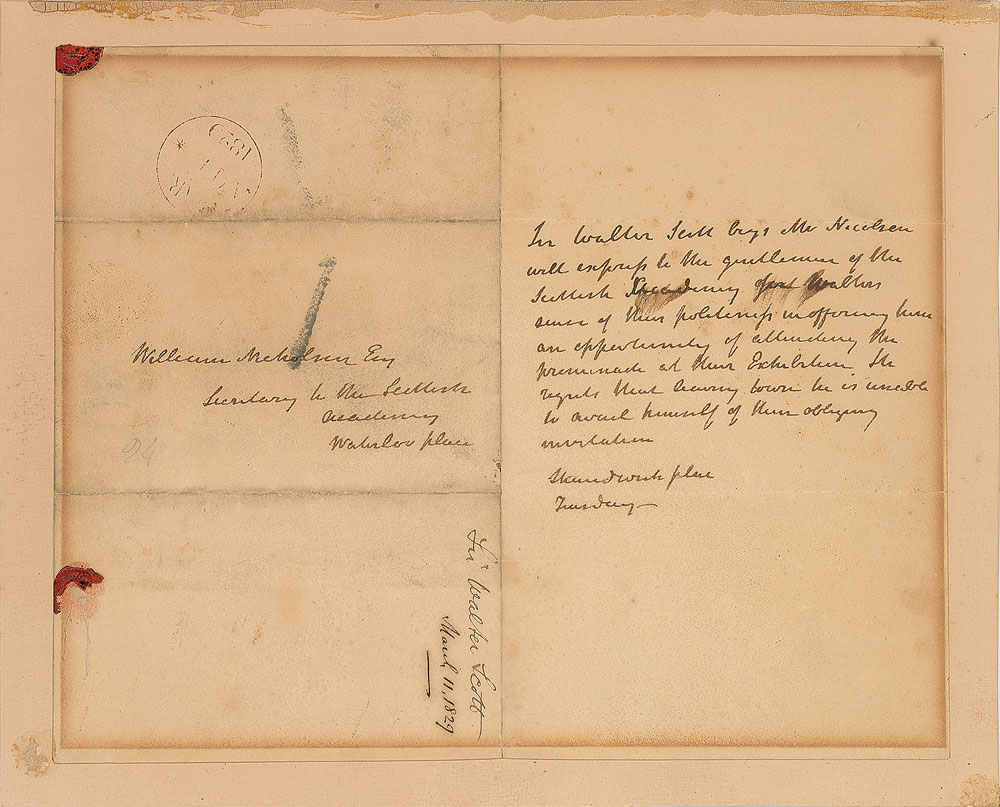 1829
William Nicholson Esq
Secretary to the Scottish
Academy
Waterloo place
24
Sir Walter Scott
March 11, 1829
Sir Walter Scott begs Mr Nicolson
will express to the gentlemen of the
Scottish Academy Walters
sense of their politeness in offering him
an opportunity of attending the
promenade at their Exhibition. He
regrets that leaving town he is unable
to avail himself of their obliging
invitation
Shandwick place
Tuesday